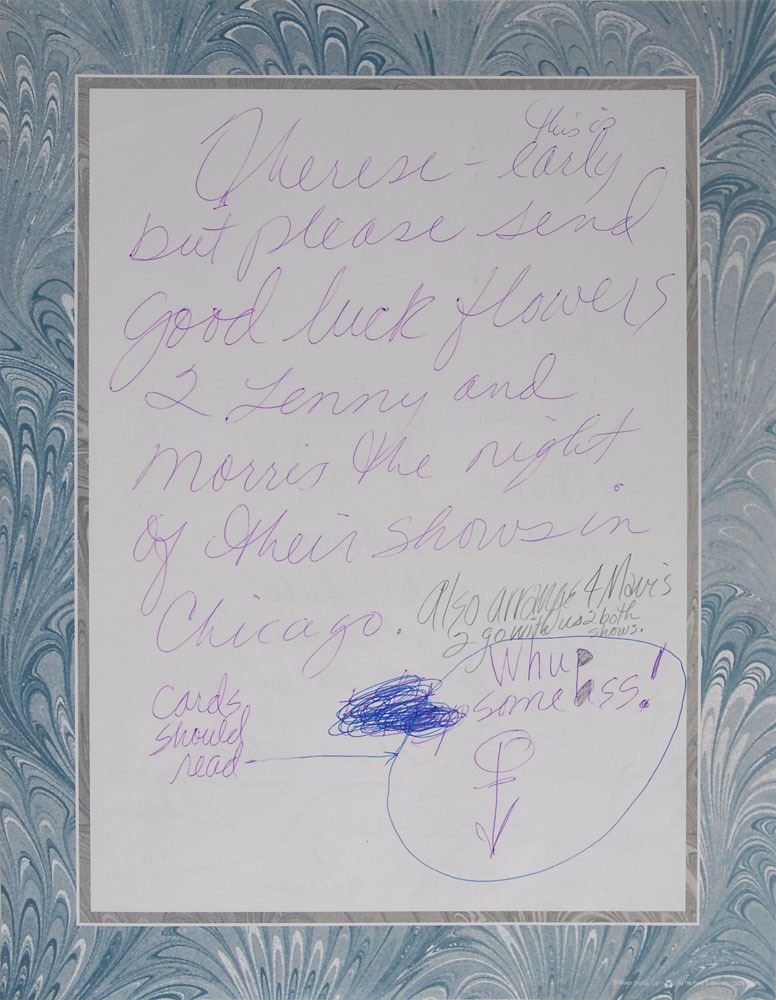 Therese - This is
early
but please send
good luck flowers
2 Lenny and
Morris the night
of their shows in
Chicago.
Also arrange 4 Mavis
2 go with us 2 both
shows.
Cards
should
read
Whup
some ass!